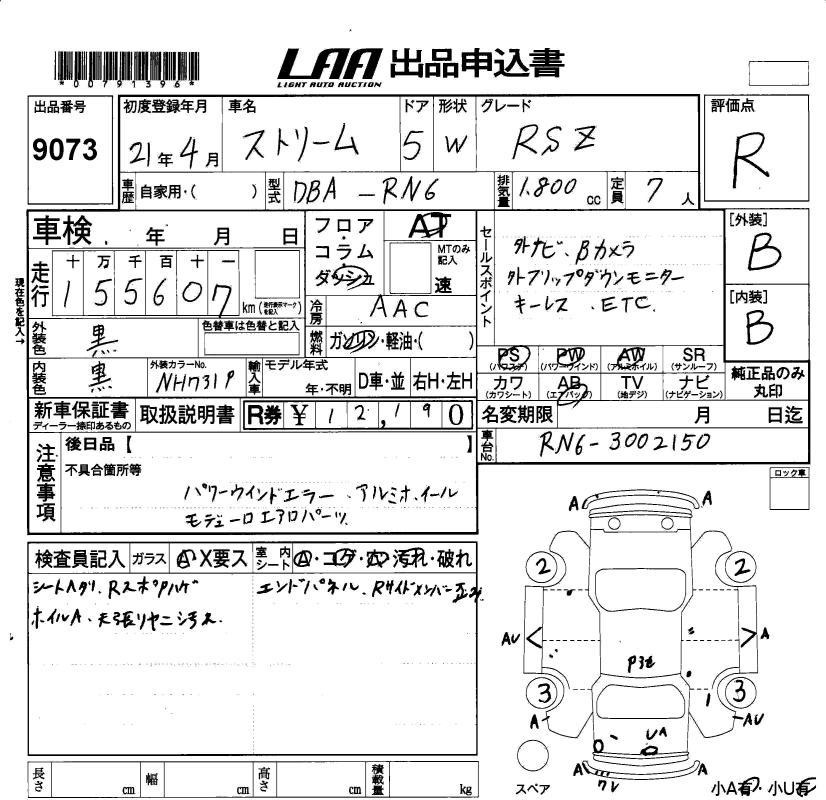 *00791396*
LAA 出品申込書
LIGHT AUTO AUCTION
出品番号 9073
初度登録年月 21年4月
車名 ストリーム
ドア 5
形状 W
グレード RSZ
評価点 R
車歴 自家用・( )
型式 DBA-RN6
排気量 1.800 cc
定員 7 人
車検 年 月 日
フロア・コラム ダッシュ
AT
MTのみ記入 速
セールスポイント
外ナビ.Bカメラ
外フリップダウンモニター
キーレス.ETC.
[外装] B
[内装] B
現在色を記入→
走行 十 万 千 百 十 一
155607 km (走行表示マークを記入)
冷房 AAC
外装色 黒
色替車は色替と記入
燃料 ガソリン・軽油・( )
内装色 黒
外装カラーNo. NH731P
輸入車 モデル年式 年・不明
D車・並 右H・左H
PS (パワステ) PW (パワーウインド) AW (アルミホイル) SR (サンルーフ)
カワ (カワシート) AB (エアバック) TV (地デジ) ナビ (ナビゲーション)
純正品のみ丸印
新車保証書 ディーラー捺印あるもの
取扱説明書
R券 ¥ 12,190
名変期限 月 日迄
車台No. RN6-3002150
注意事項
後日品【 】
不具合箇所等
パワーウインドエラー.アルミホイール
モデューロエアロパーツ.
ロック車
検査員記入 ガラス A X要ス
室内シート A・コゲ・穴・汚れ・破れ
シートヘタリ.RスポPハゲ
エンドパネル.Rサイドメンバー
ホイルA.天張りヤニ汚れ
A A
2 2
AU A
P3セ
3 3
A 1 AU
UA
A A
ワレ
スペア
小A有・小U有
長さ cm 幅 cm 高さ cm 積載量 kg